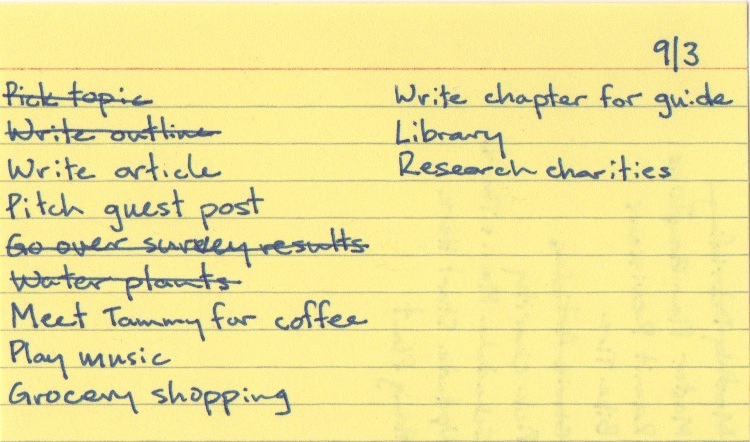 9/3
Pick topic
Write outline
Write article
Pitch guest post
Go over survey results
Water plants
Meet Tammy for coffee
Play music
Grocery shopping
Write chapter for guide
Library
Research charities